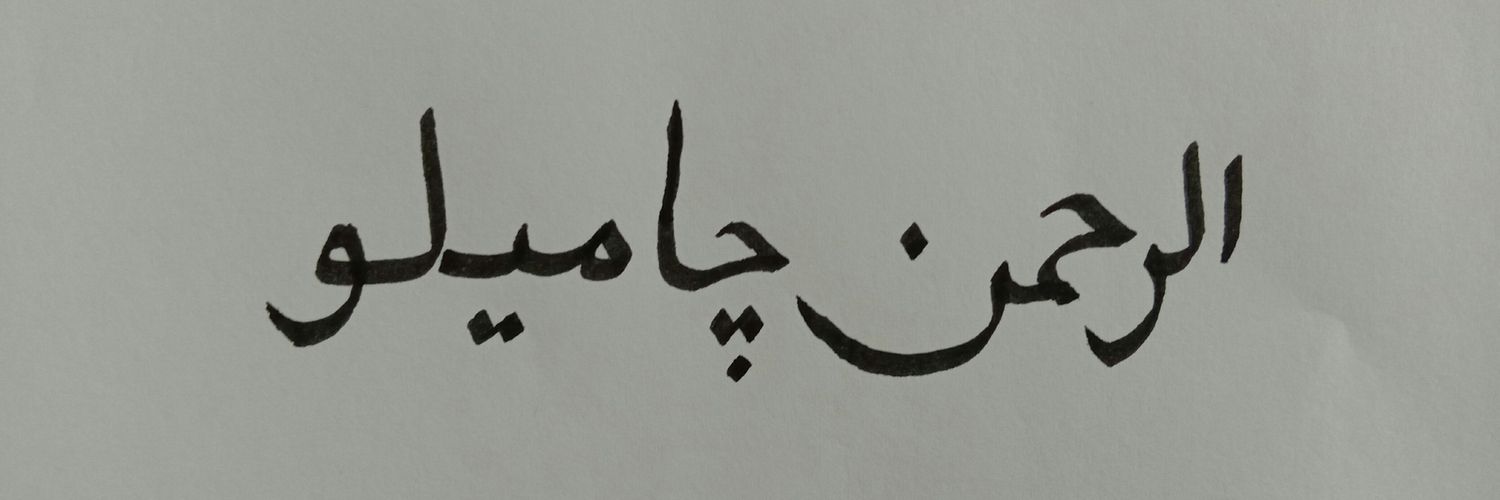 الرحمن چاميلو